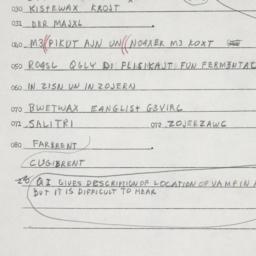 030 KISTEWAX KROJT
031 DER MAJXL
040 M3 PIKUT AJN UN NOAXER M3 KOXT
050 ROQSL QGLY DI FLISIKAJT: FUN FERMENTAC
060 IN ZISN UN IN ZOJERN
070 BWETWAX EANGLIST G3VIRC
071 SALITRI 072 ZOJERZAWC
080 FARBRENT
CUGIBRENT
QI GIVES DESCRIPTION OF LOCATION OF VAMPIN A
BUT IT IS DIFFICULT TO HEAR